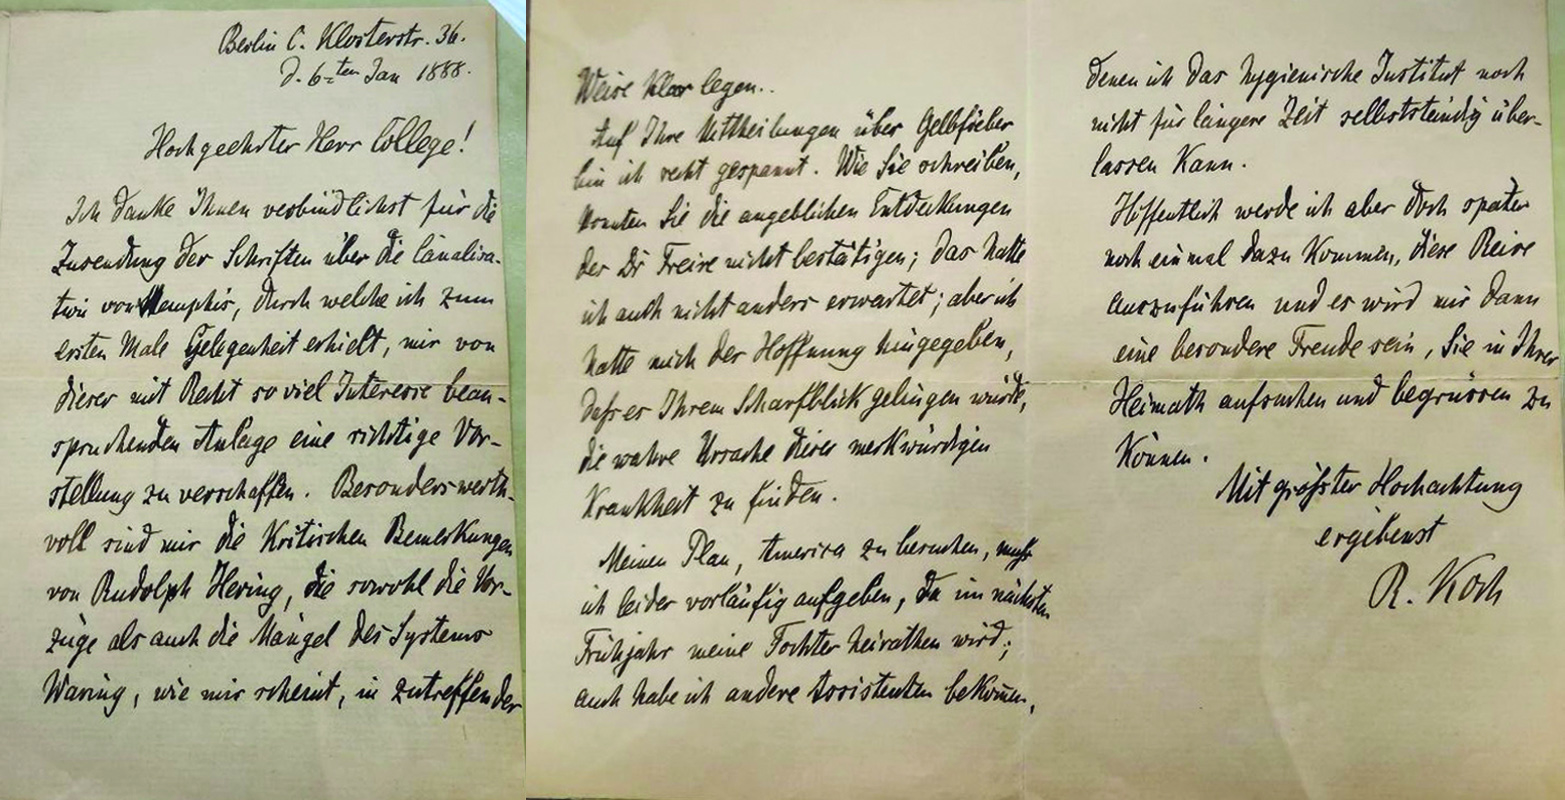 Berlin C. Klosterstr. 36.
d. 6-ten Jan 1888.
Hochgeehrter Herr College!
Ich danke Ihnen verbindlichst für die
Zusendung der Schriften über die Canalisa-
tion von Memphis, durch welche ich zum
ersten Male Gelegenheit erhielt, mir von
dieser mit Recht so viel Interesse bean-
spruchenden Anlage eine richtige Vor-
stellung zu verschaffen. Besonders werth-
voll sind mir die kritischen Bemerkungen
von Rudolph Hering, die sowohl die Vor-
züge als auch die Mängel des Systems
Waring, wie mir scheint, in zutreffender
Weise klar legen..
Auf Ihre Mittheilungen über Gelbfieber
bin ich recht gespannt. Wie Sie schreiben,
konnten Sie die angeblichen Entdeckungen
der Dr Freire nicht bestätigen; das hatte
ich auch nicht anders erwartet; aber ich
hatte mich der Hoffnung hingegeben,
daß es Ihrem Scharfblick gelingen würde,
die wahre Ursache dieser merkwürdigen
Krankheit zu finden.
Meinen Plan, America zu besuchen, muß
ich leider vorläufig aufgeben, da im nächsten
Frühjahr meine Tochter heirathen wird;
auch habe ich andere Assistenten bekommen,
denen ich das hygienische Institut noch
nicht für längere Zeit selbstständig über-
lassen kann.
Hoffentlich werde ich aber doch später
noch einmal dazu kommen, diese Reise
auszuführen und es wird mir dann
eine besondere Freude sein, Sie in Ihrer
Heimath aufsuchen und begrüssen zu
können.
Mit größter Hochachtung
ergebenst
R. Koch